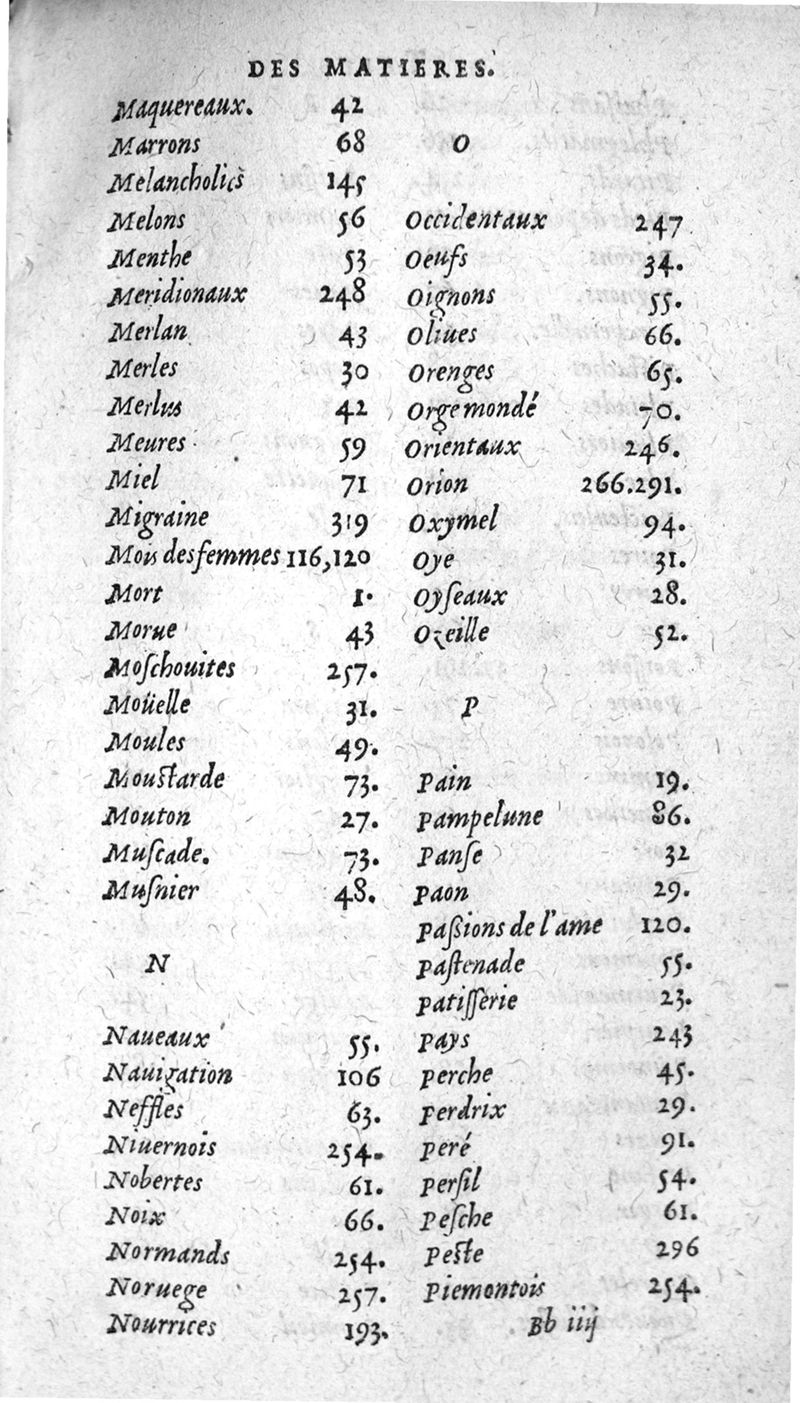 DES MATIERES.
Maquereaux. 42
Marrons 68
Melancholics 145
Melons 56
Menthe 53
Meridionaux 248
Merlan 43
Merles 30
Merlus 42
Meures 59
Miel 71
Migraine 319
Mois des femmes 116,120
Mort 1.
Morue 43
Moſchouites 257.
Moüelle 31.
Moules 49.
Mouſtarde 73.
Mouton 27.
Muſcade. 73.
Muſnier 48.
N
Naueaux 55.
Nauigation 106
Neffles 63.
Niuernois 254.
Nobertes 61.
Noix 66.
Normands 254.
Noruege 257.
Nourrices 193.
O
Occidentaux 247
Oeufs 34.
Oignons 55.
Oliues 66.
Orenges 65.
Orge mondé 70.
Orientaux 246.
Orion 266.291.
Oxymel 94.
Oye 31.
Oyſeaux 28.
Ozeille 52.
P
Pain 19.
Pampelune 86.
Panſe 32
Paon 29.
Paßions de l'ame 120.
Paſtenade 55.
Patiſſerie 23.
Pays 243
Perche 45.
Perdrix 29.
Peré 91.
Perſil 54.
Peſche 61.
Peſte 296
Piemontois 254.
Bb iiij